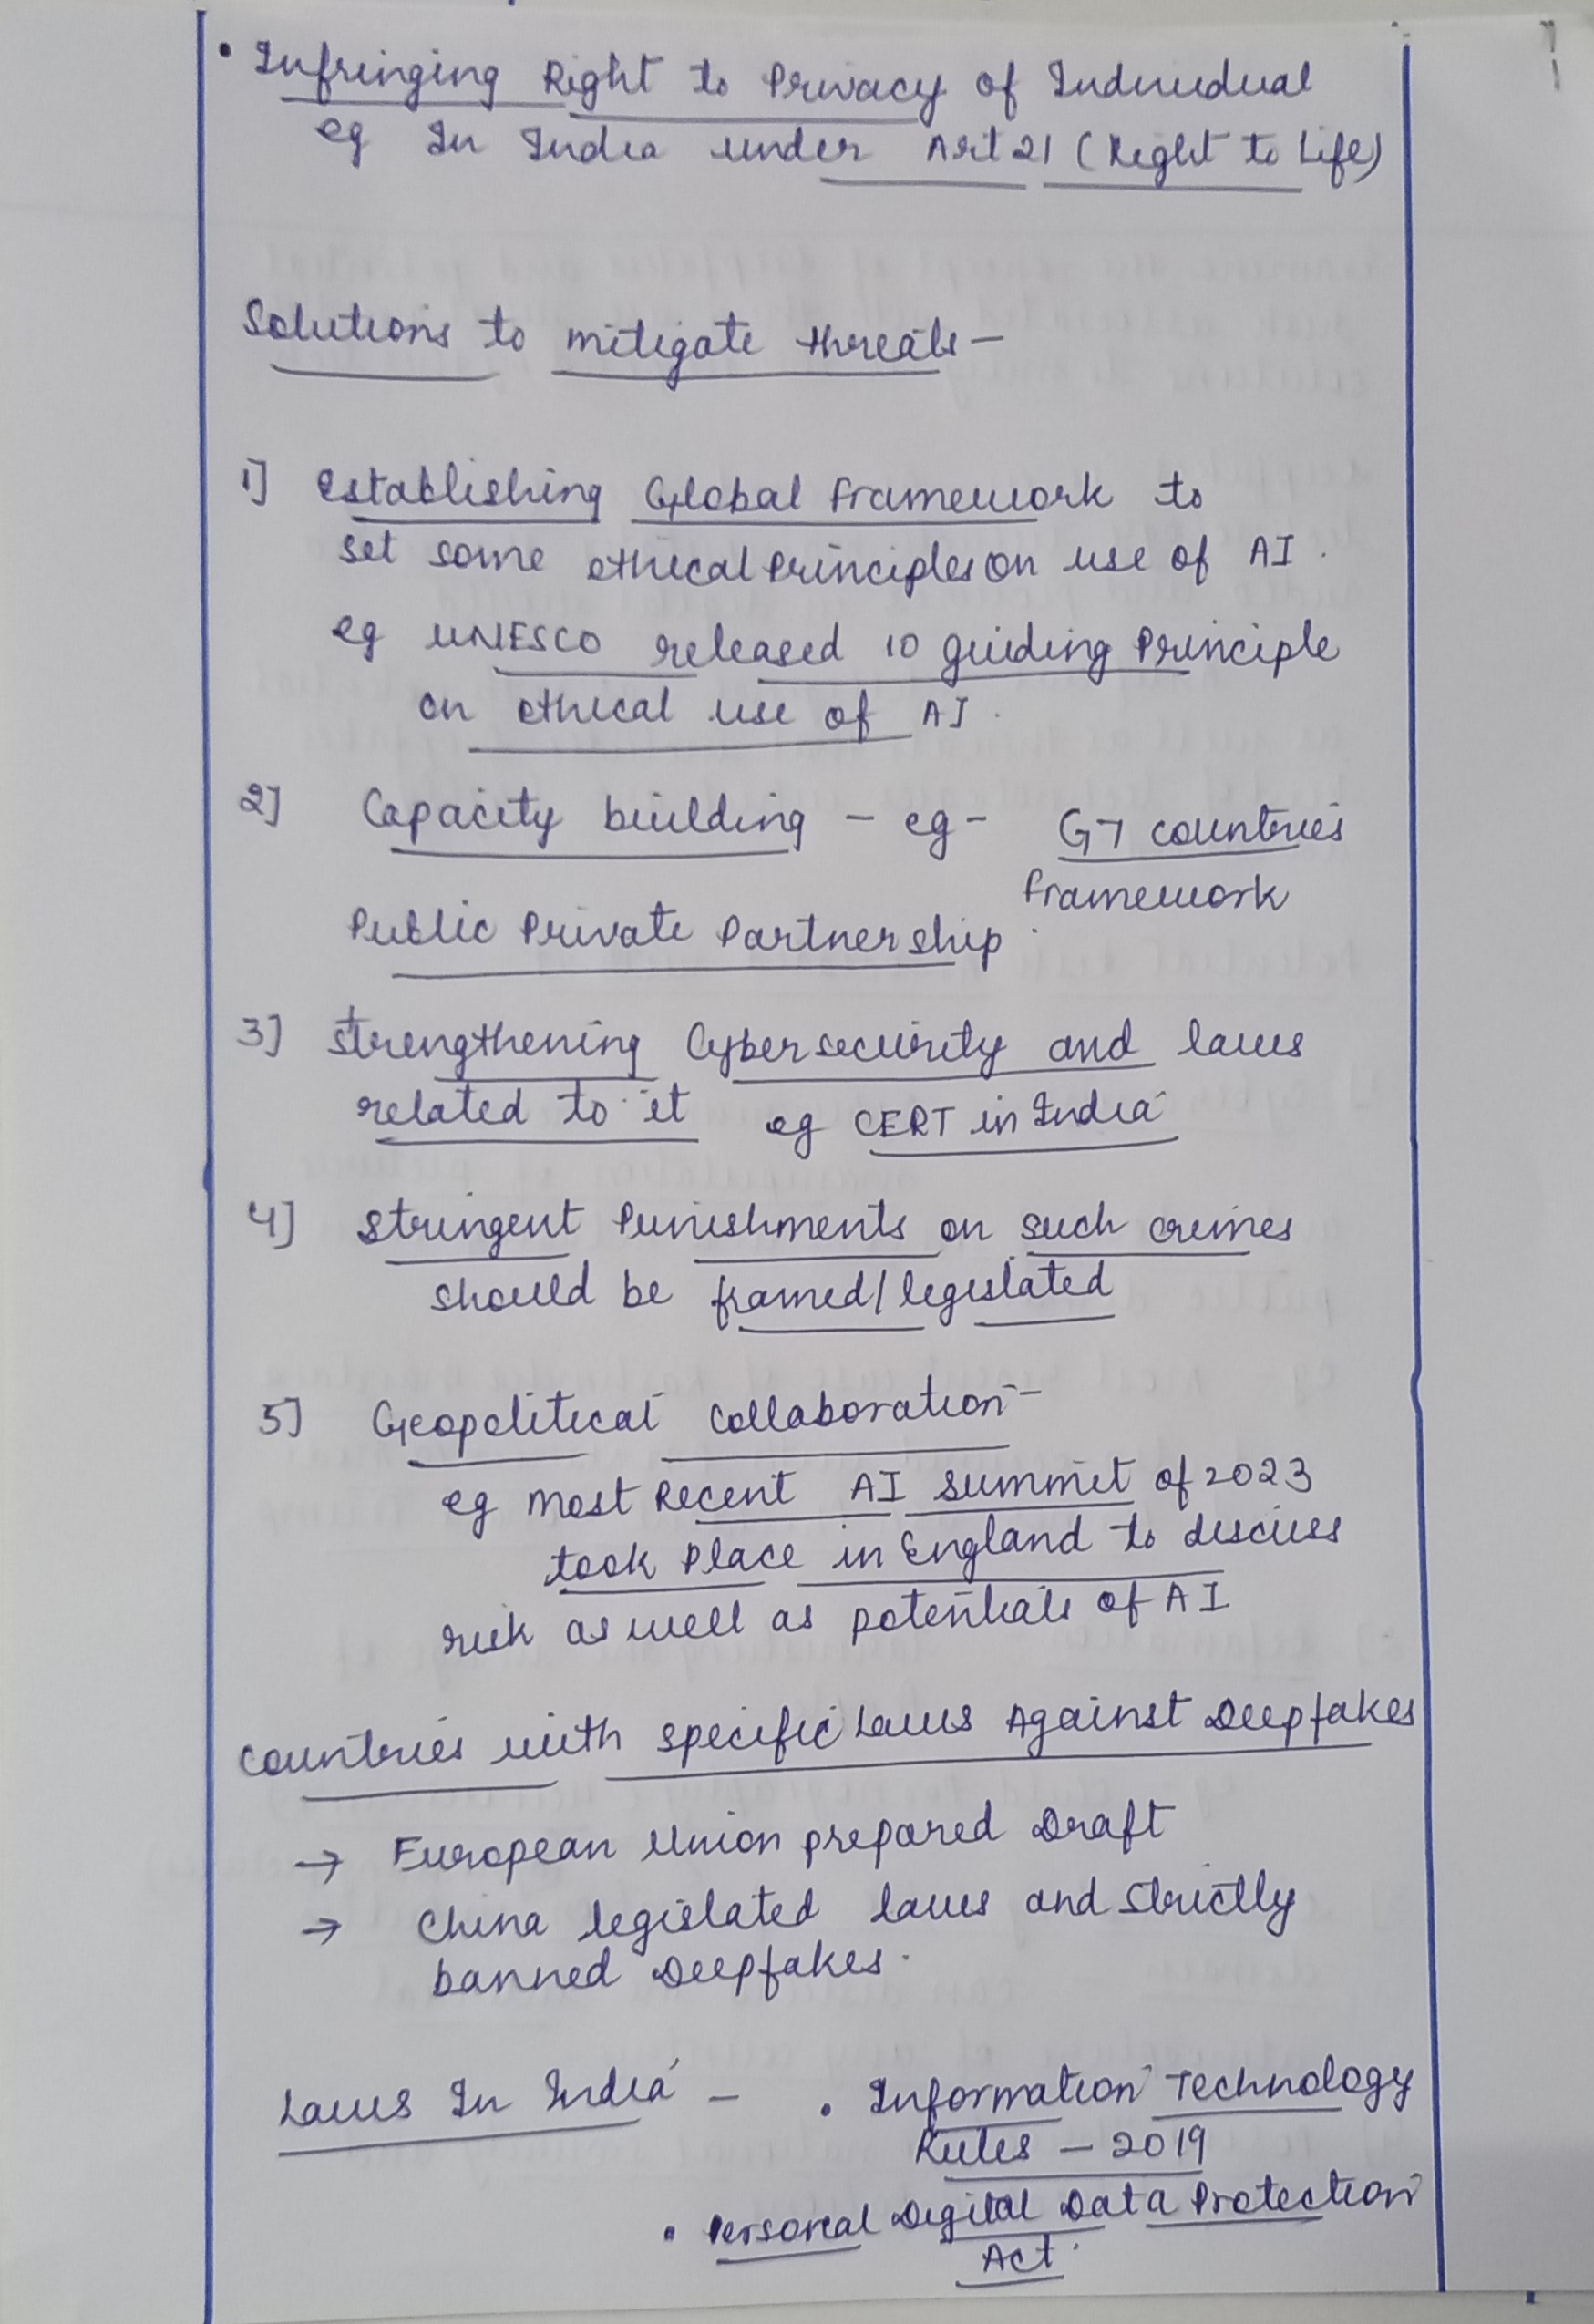 • Infringing Right to Privacy of Individual
eg In India under Art 21 (Right to Life)
Solutions to mitigate threats –
1] Establishing Global Framework to
set some ethical Principles on use of AI.
eg UNESCO released 10 guiding Principle
on ethical use of AI.
2] Capacity building – eg – G7 countries
framework
Public Private Partnership.
3] Strengthening Cybersecurity and laws
related to it eg CERT in India
4] Stringent Punishments on such crimes
should be framed/legislated
5] Geopolitical collaboration –
eg most Recent AI Summit of 2023
took Place in England to discuss
risk as well as potentials of AI
Countries with specific Laws Against Deepfakes
→ European Union prepared Draft
→ China legislated laws and strictly
banned Deepfakes.
Laws In India – • Information Technology
Rules – 2019
• Personal Digital Data Protection
Act.